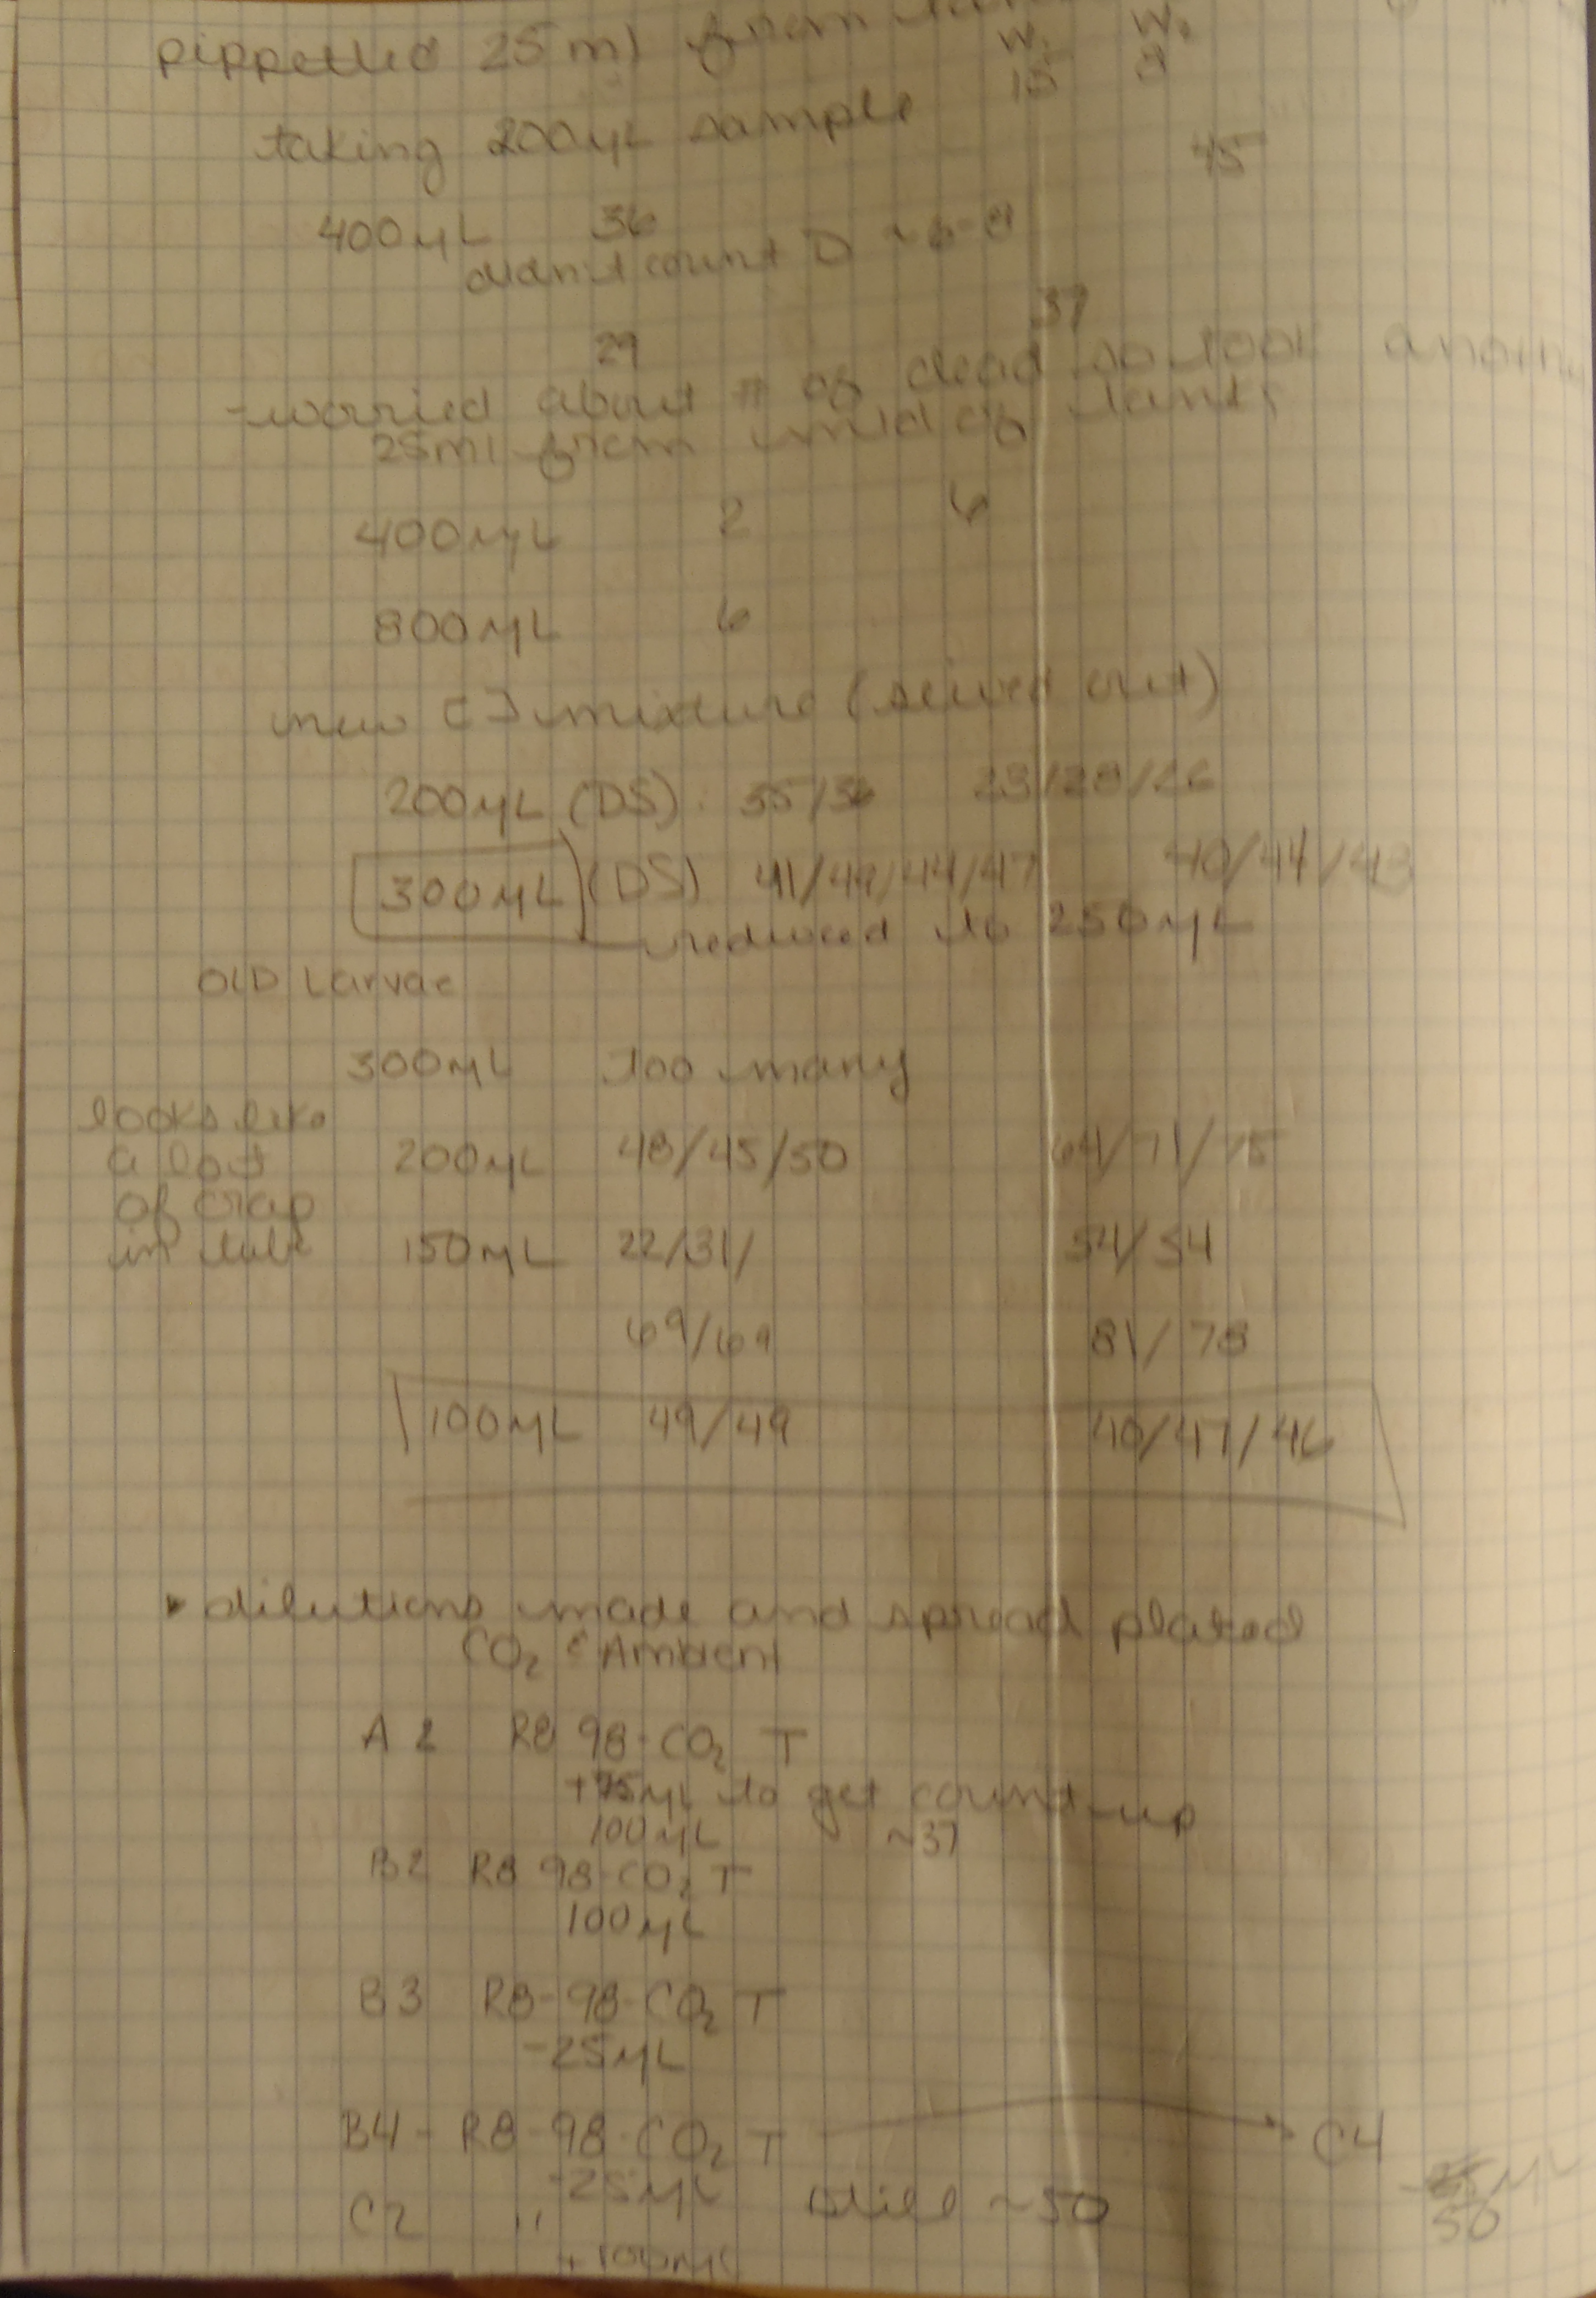 pippetted 25 ml from
W. W.
15 8
taking 200µL sample
45
400µL 36
didn't count D ~6-8
37
29
-worried about # of dead so took
25ml from mid of tank
400µL 2 6
800µL 6
new [] mixture (seived out)
200µL (DS) 35/36 23/28/26
300µL (DS) 41/49/44/47 40/44/43
reduced to 250µL
OLD Larvae
300µL Too many
looks like
a lot 200µL 48/45/50 64/71/75
of crap
in tube 150µL 22/31/ 54/54
69/69 81/78
100µL 49/49 40/47/46
• dilutions made and spread plated
CO2 & Ambient
A2 R8 98-CO2 T
+75µL to get count up
100µL ~37
B2 R8 98-CO2 T
100µL
B3 R8-98-CO2 T
-25µL
B4 - R8-98-CO2 T → C4
-25µL
C2 " still ~50 50
+100µL